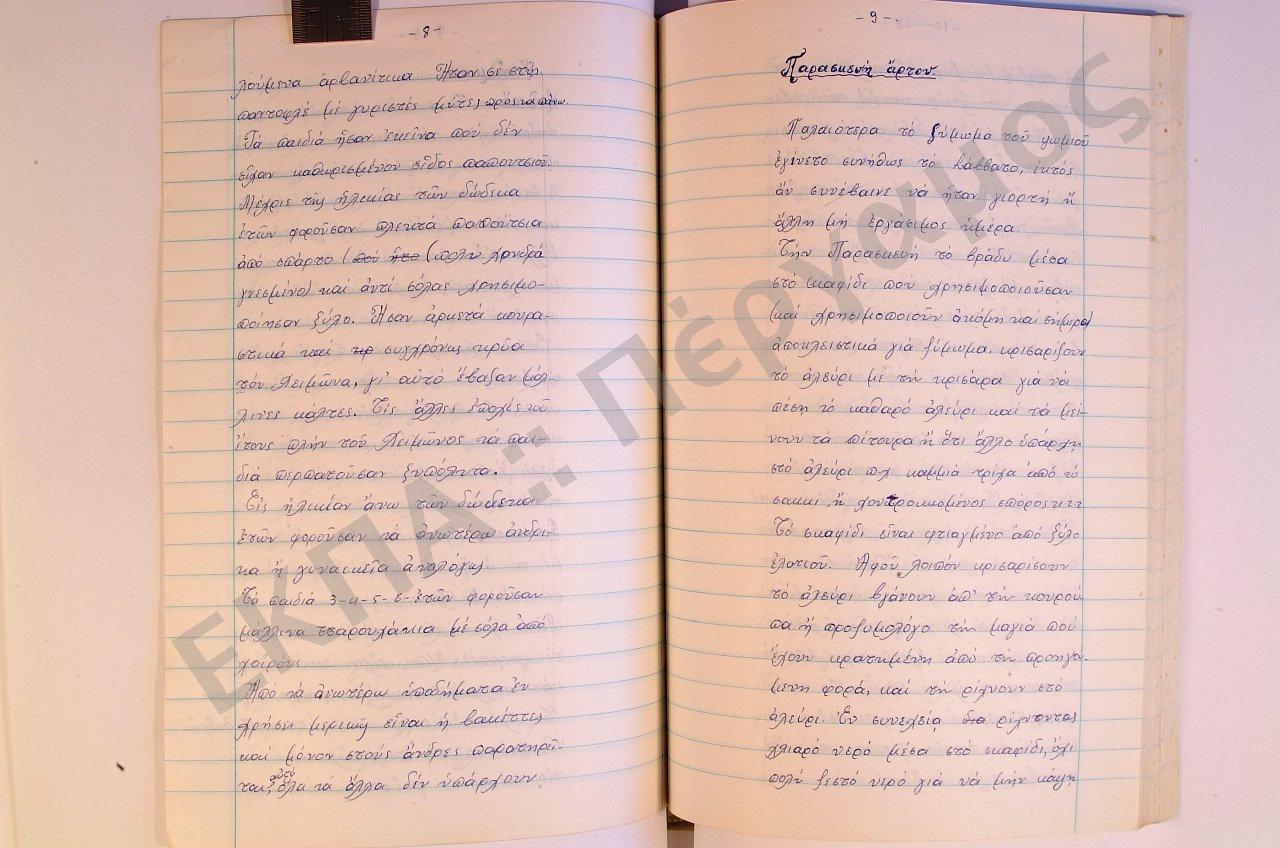 -8-
λούμενα ἀρβανίτικα. Ἦταν σέ στύλ
παντοφλέ μέ γυριστές μύτες πρός τά πάνω.
Τά παιδιά ἦσαν ἐκεῖνα πού δέν
εἶχαν καθωρισμένον εἶδος παπουτσιοῦ.
Μέχρις τῆς ἡλικίας τῶν δώδεκα
ἐτῶν φοροῦσαν πλεκτά παπούτσια
ἀπό σπάρτο (πολύ χονδρά
γνεσμένο) καί ἀντί σόλας χρησιμο-
ποίησαν ξύλο. Ἦσαν ἀρκετά κουρα-
στικά καί συγχρόνως κρύα
τόν χειμῶνα, γι' αὐτό ἔβαζαν μάλ-
λινες κάλτες. Τίς ἄλλες ἐποχές τοῦ
ἔτους πλήν τοῦ χειμῶνος τά παι-
διά περπατοῦσαν ξυπόλυτα.
Εἰς ἡλικίαν ἄνω τῶν δώδεκα
ἐτῶν φοροῦσαν τά ἀνωτέρω ἀνδρι-
κα ἤ γυναικεῖα ἀναλόγως
Τά παιδιά 3-4-5-6- ἐτῶν φοροῦσαν
μάλλινα τσαρουχάκια μέ σόλα ἀπό
χοίρους
Ἀπό τά ἀνωτέρω ὑποδήματα ἐν
χρήσει μερικῶς εἶναι ἡ βακέττες
καί μόνον στούς ἄνδρες παρατηρεῖ-
ται αὐτό, ὅλα τά ἄλλα δέν ὑπάρχουν.
-9-
Παρασκευή ἄρτου.
Παλαιότερα τό ζύμωμα τοῦ ψωμιοῦ
ἐγίνετο συνήθως τό Σάββατο, ἐκτός
ἄν συνέβαινε νά ἦταν γιορτή ἤ
ἄλλη μή ἐργάσιμος ἡμέρα.
Τήν Παρασκευή τό βράδυ μέσα
στό σκαφίδι πού χρησιμοποιοῦσαν
(καί χρησιμοποιοῦν ἀκόμη καί σήμερα)
ἀποκλειστικά γιά ζύμωμα, κρισαρίζουν
τό ἀλεύρι μέ τήν κρισάρα γιά νά
πέση τό καθαρό ἀλεύρι καί τά μεί-
νουν τά πίτουρα ἤ ὅτι ἄλλο ὑπάρχη
στό ἀλεύρι π.χ. καμμιά τρίχα ἀπό τό
σακκί, ἤ χοντροκομμένος σπόρος κ.τ.λ
Τό σκαφίδι εἶναι φτιαγμένο ἀπό ξύλο
ἐλατιοῦ. Ἀφοῦ λοιπόν κρισαρίσουν
τό ἀλεύρι βγάνουν ἀπ' τήν κουρού
πα ἤ προζυμολόγο τήν μαγιά πού
ἔχουν κρατημένη ἀπό τή προηγού-
μενη φορά, καί τή ρίχνουν στό
ἀλεύρι. Ἐν συνεχείᾳ ρίχνοντας
χλιαρό νερό μέσα στό σκαφίδι, ὄχι
πολύ ζεστό νερό γιά νά μήν κάψη
ΕΚΠΑ :: Πέργαμος